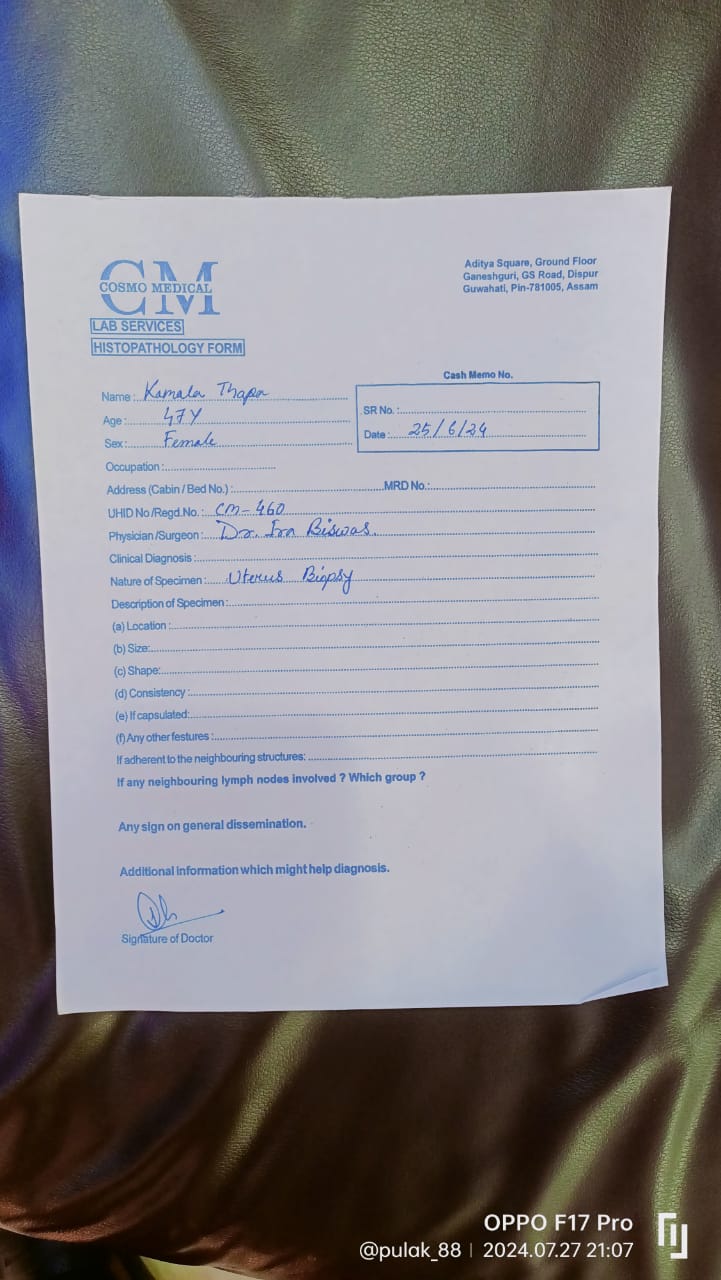 CM
COSMO MEDICAL
LAB SERVICES
HISTOPATHOLOGY FORM
Aditya Square, Ground Floor
Ganeshguri, GS Road, Dispur
Guwahati, Pin-781005, Assam
Cash Memo No.
Name : Kamala Thapa
Age : 47Y
Sex : Female
SR No. :
Date : 25/6/24
Occupation :
Address (Cabin / Bed No.) : MRD No.:
UHID No /Regd.No. : CM-460
Physician /Surgeon : Dr. Ira Biswas.
Clinical Diagnosis :
Nature of Specimen : Uterus Biopsy
Description of Specimen :
(a) Location :
(b) Size:
(c) Shape:
(d) Consistency :
(e) If capsulated:
(f) Any other festures :
If adherent to the neighbouring structures:
If any neighbouring lymph nodes involved ? Which group ?
Any sign on general dissemination.
Additional information which might help diagnosis.
Signature of Doctor
OPPO F17 Pro
@pulak_88 | 2024.07.27 21:07